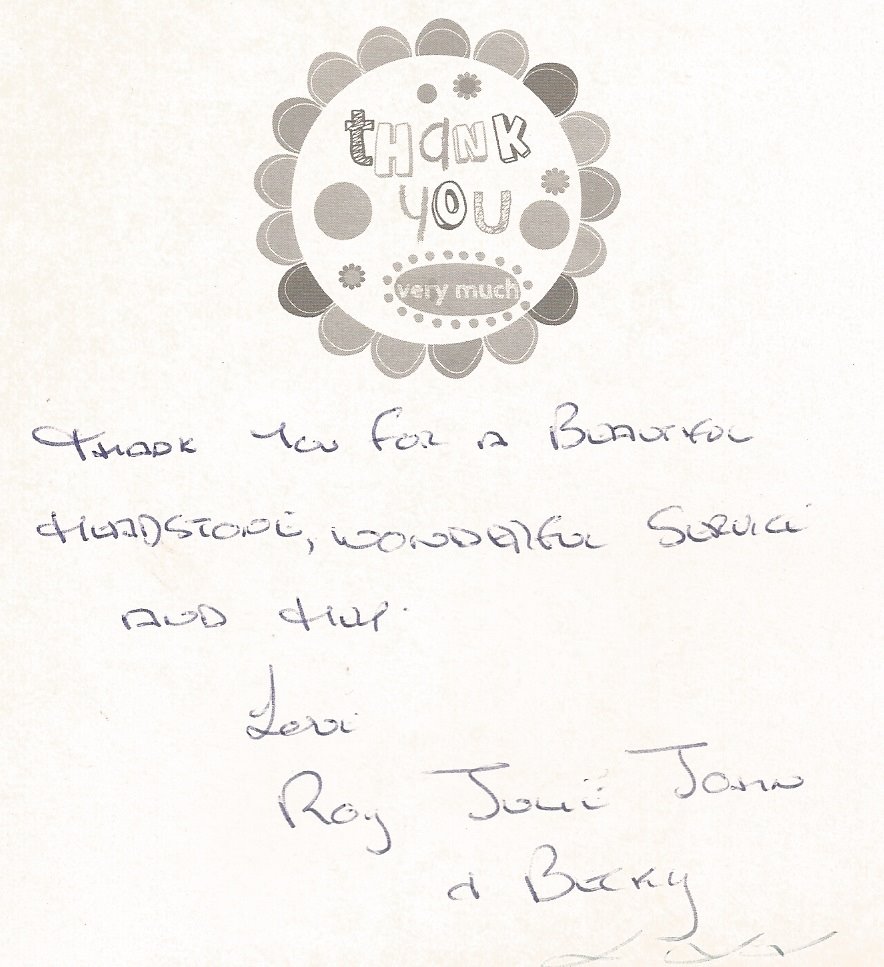 tHaNK
yOU
very much
THANK YOU FOR A BEAUTIFUL
HEADSTONE, WONDERFUL SERVICE
AND HELP.
Love
Roy JULIE JOHN
& BECKY